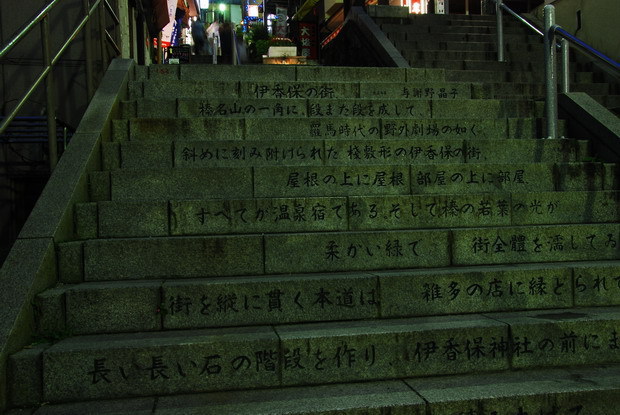 伊香保の街 与謝野晶子
榛名山の一角に、段また段を成して、
羅馬時代の野外劇場の如く、
斜めに刻み附けられた 桟敷形の伊香保の街、
屋根の上に屋根、部屋の上に部屋、
すべてが温泉宿である、そして榛の若葉の光が
柔かい緑で 街全體を濡してゐ
街を縦に貫く本道は 雑多の店に縁とられて
長い長い石の階段を作り、伊香保神社の前にま